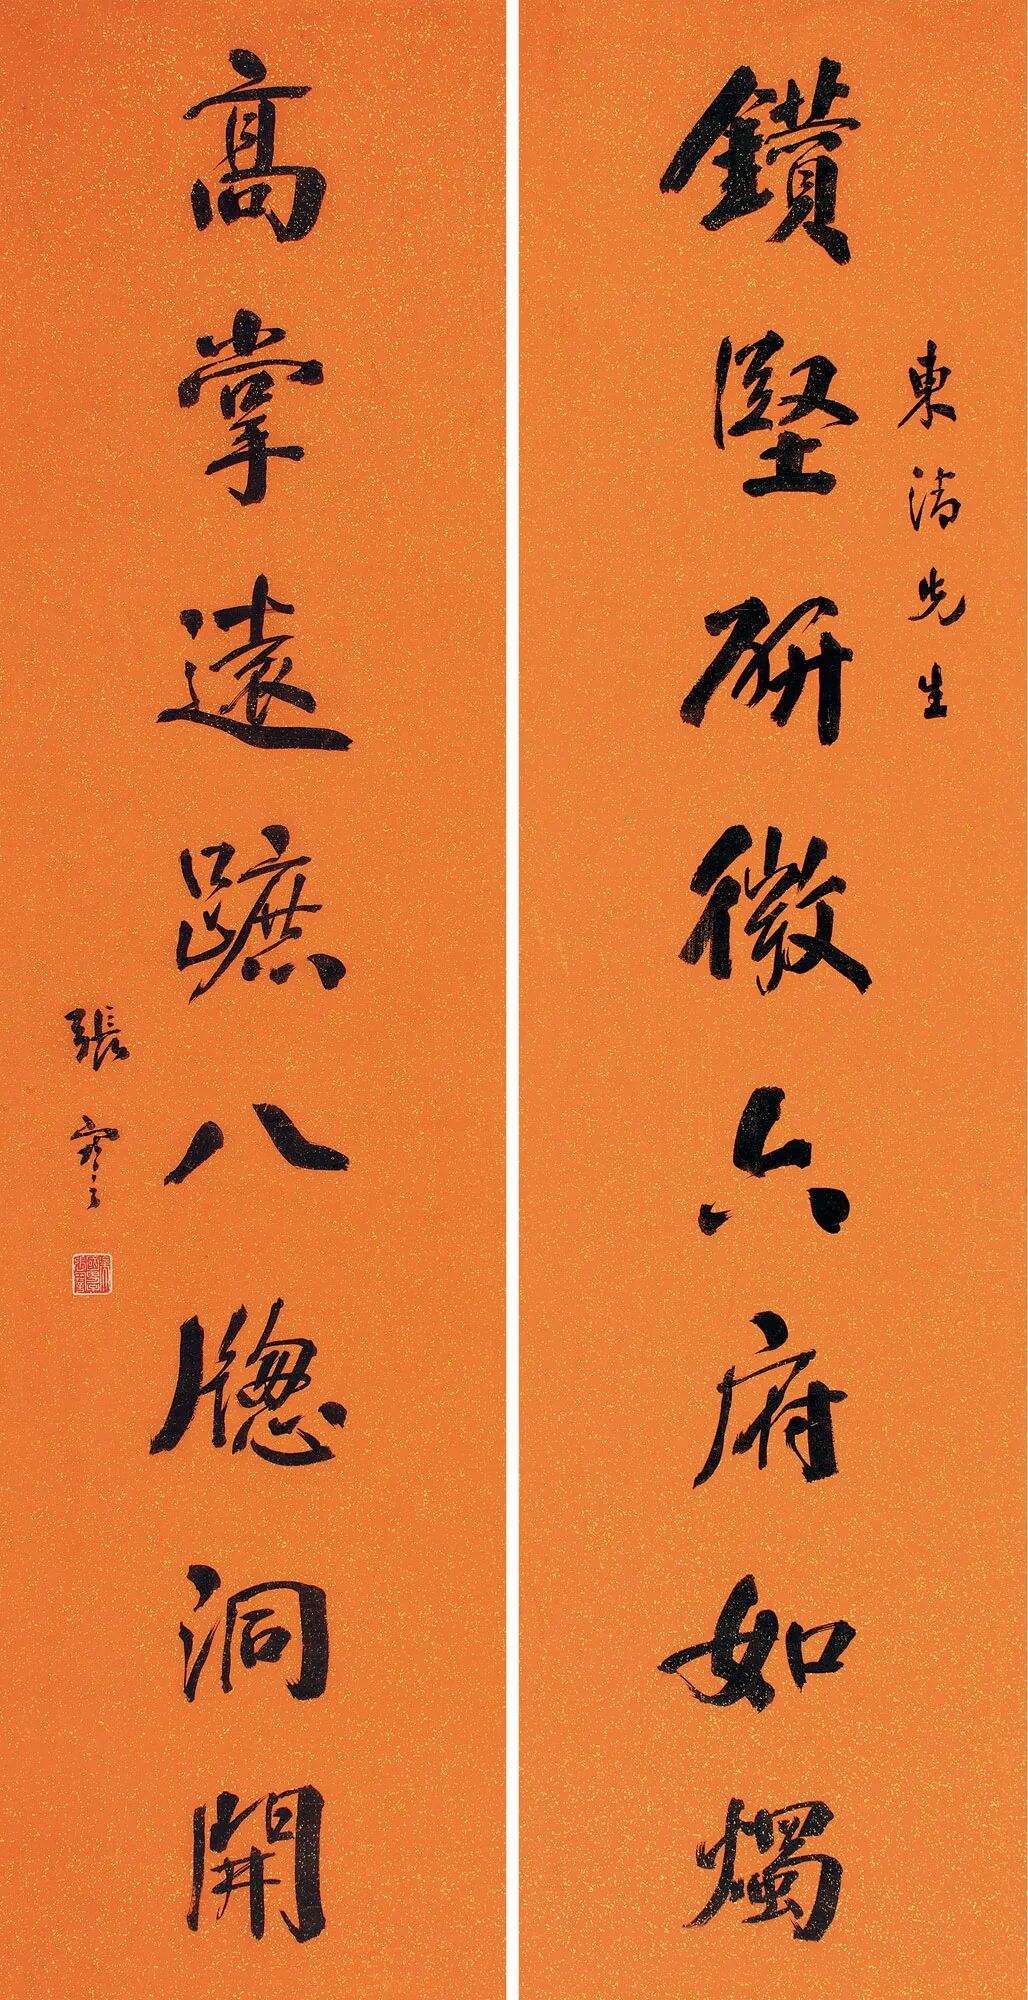 東清先生
鑽堅研微六府如燭
高掌遠蹠八牕洞開
張謇